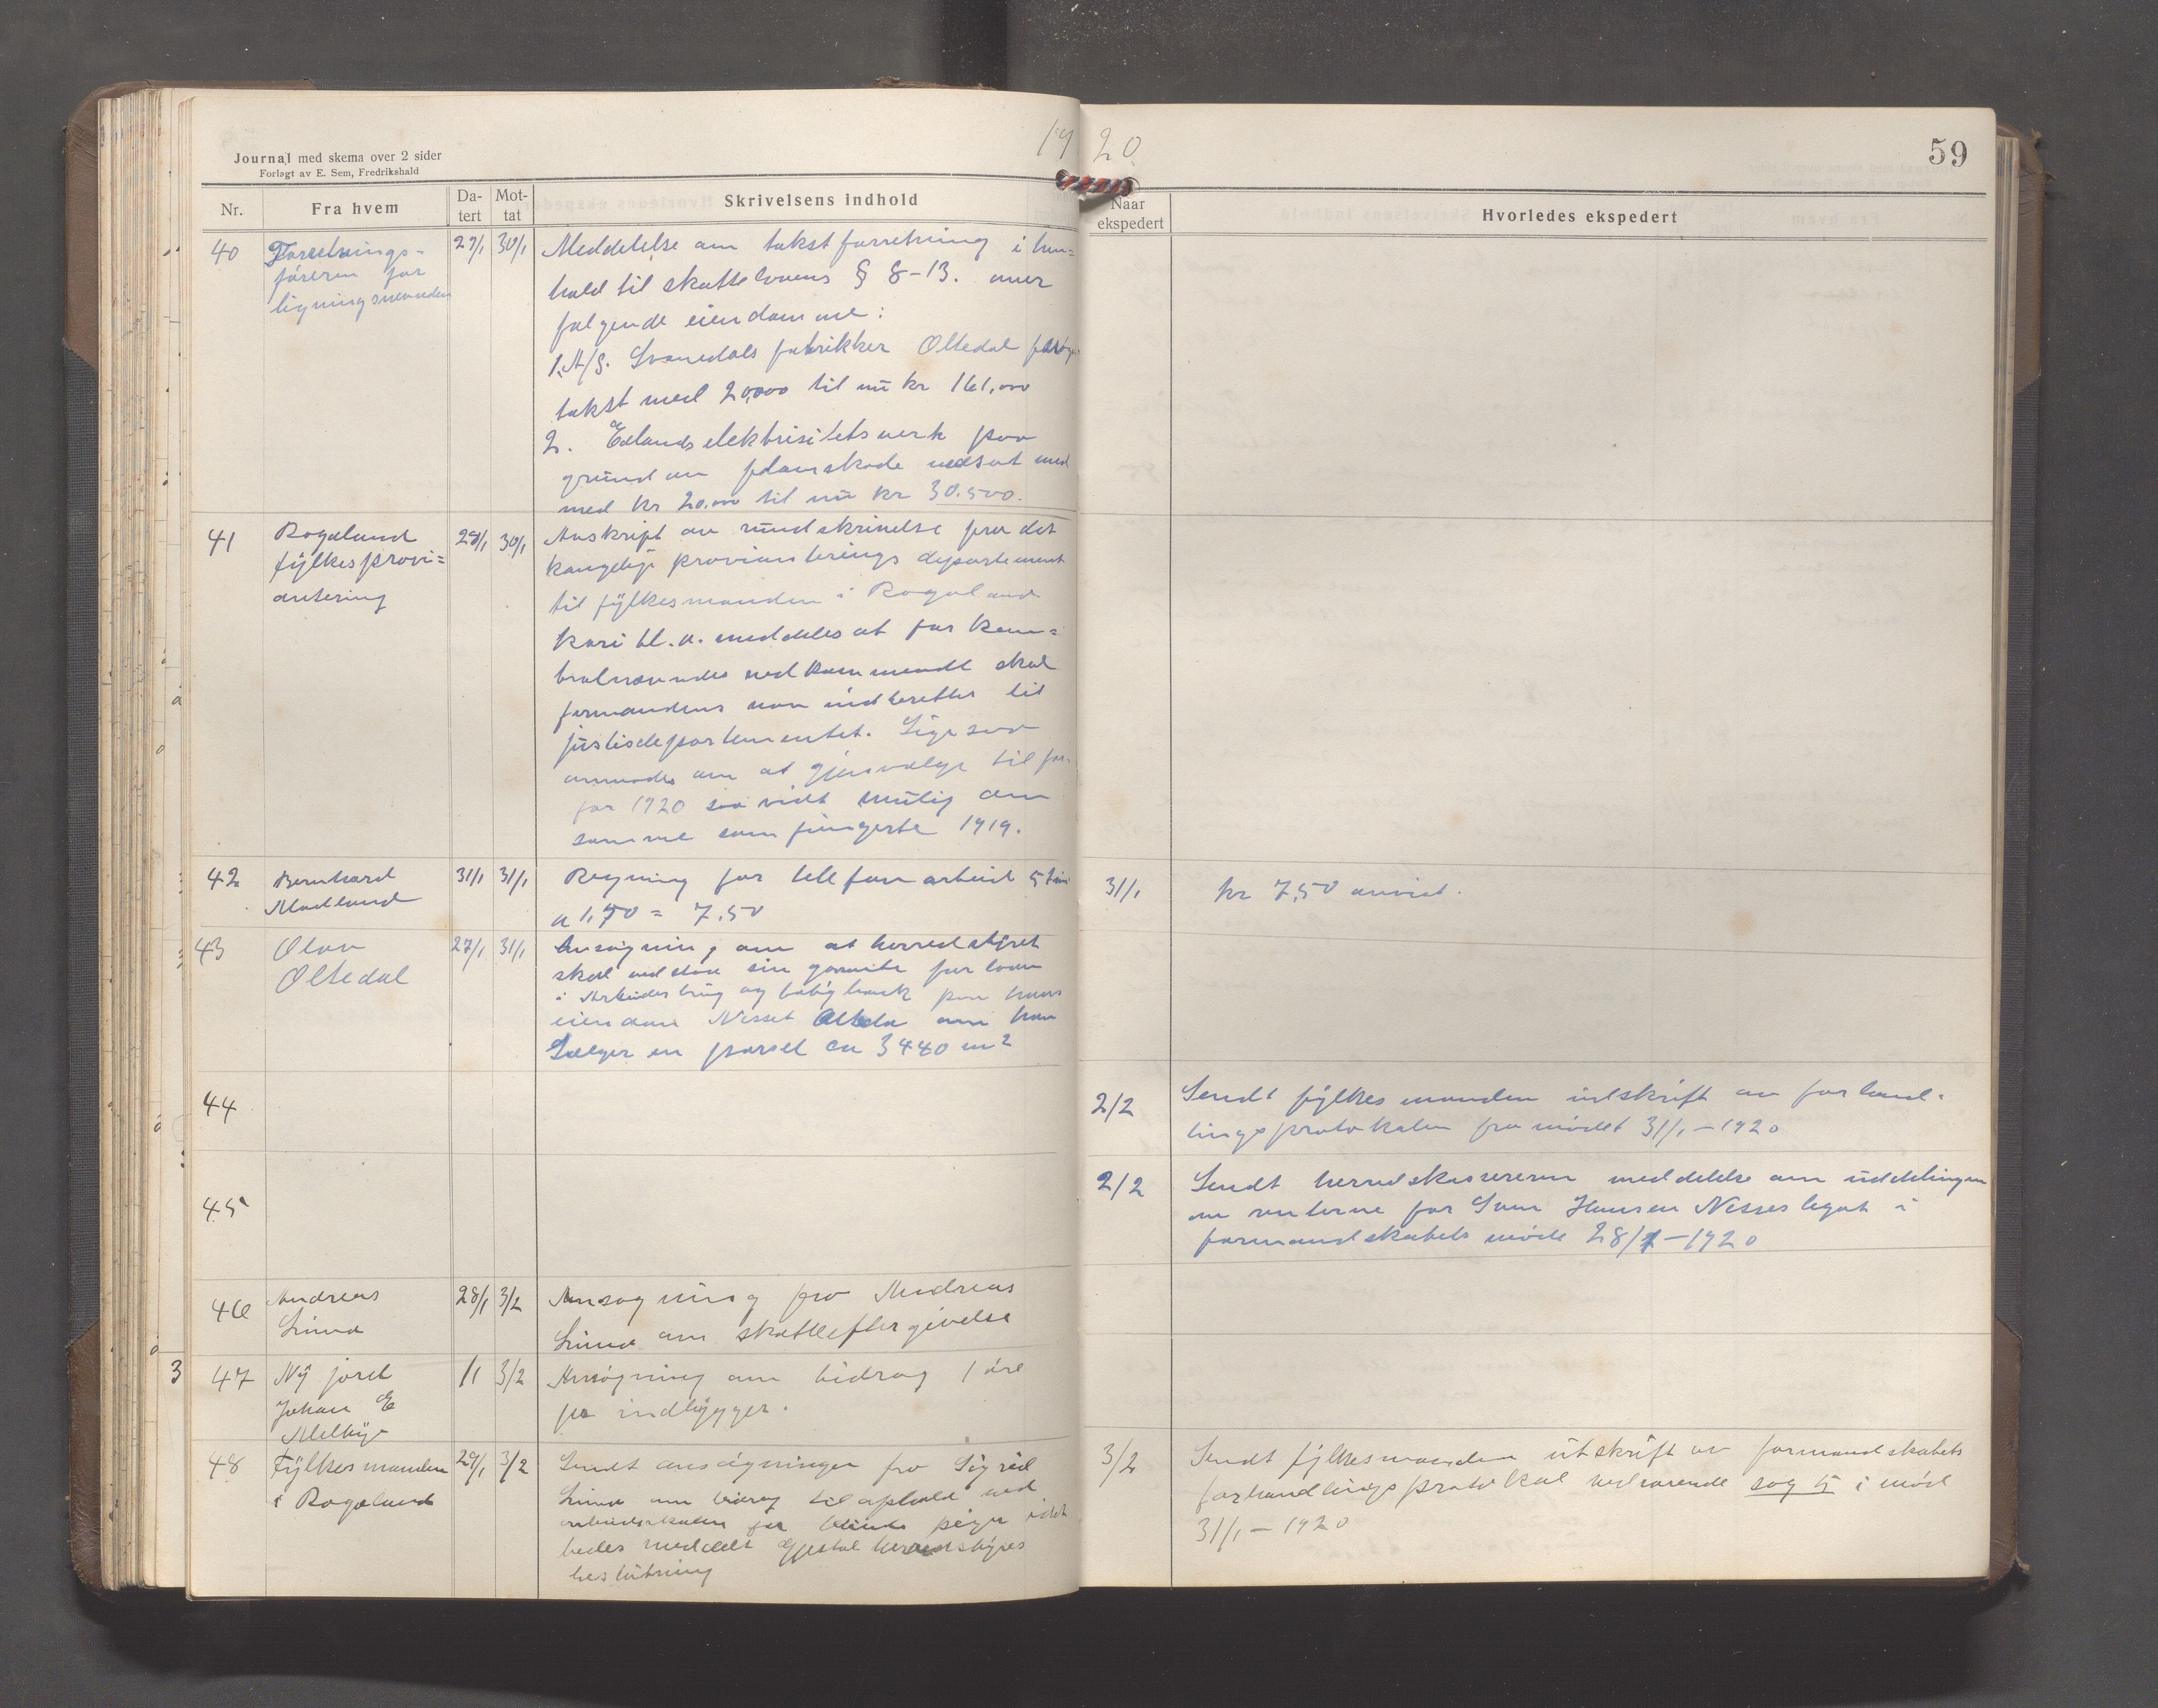 1920
59
Journal med skema over 2 sider
Forlagt av E. Sem, Fredrikshald
Nr.
Fra hvem
Da-
tert
Mot-
tat
Skrivelsens indhold
Naar
ekspedert
Hvorledes ekspedert
40
Forretnings-
føreren for
ligningsnevnden
29/1
30/1
Meddelelse om takstforretning i hen=
hold til skattelovens § 8-13. over
følgende eiendomme:
1. A/S. Svanedals fabrikker Oltedal
takst med 20,000 til nu kr 161,000
2. Edlands elektrisitetsverk paa
grund av flomskade nedsat med
med kr 20.000 til nu kr 30.500.
41
Rogaland
fylkesprovi=
antering
29/1
30/1
Avskrift av rundskrivelse fra det
kongelige provianterings departement
til fylkesmanden i Rogaland
hvori bl.a. meddeles at for kon=
trolnevndes vedkommende skal
formandens navn indberettes til
justisdepartementet. Ligesaa
anmodes om at gjenvælge til for-
for 1920 saavidt mulig den
samme som fungerte 1919.
42
Bernhard
Madland
31/1
31/1
Regning for telefonarbeid 5 tim
a 1,50 = 7.50
31/1
kr 7,50 anvist.
43
Olav
Oltedal
27/1
31/1
Ansøgning om at herredstyret
skal vedstaa sin garanti for laan
i Arbeiderbrug og boligbank paa hans
eiendom Nesset Oltedal om han
Sælger en parsel ca 3440 m2
44
2/2
Sendt fylkesmanden utskrift av forhand-
lingsprotokolen fra mødet 31/1-1920
45
2/2
Sendt herredskassereren meddelelse om uddelingen
av renterne for Sven Hansen Nesses legat i
formandskabets møde 28/1-1920
46
Andreas
Lima
28/1
3/2
Ansøgning fra Andreas
Lima om skatteeftergivelse
3
47
Ny jord
Johan E
Mellbye
/1
3/2
Ansøgning om bidrag 1 øre
pr indbygger.
48
Fylkesmanden
i Rogaland
29/1
3/2
Sendt ansøgningen fra Sigrid
Lima om bidrag til ophold ved
arbeidsskolen for blinde piger idet
bedes meddelt Gjestal herredstyres
beslutning
3/2
Sendt fylkesmanden utskrift av formandskabets
forhandlingsprotokol vedrørende sag 5 i møde
31/1-1920